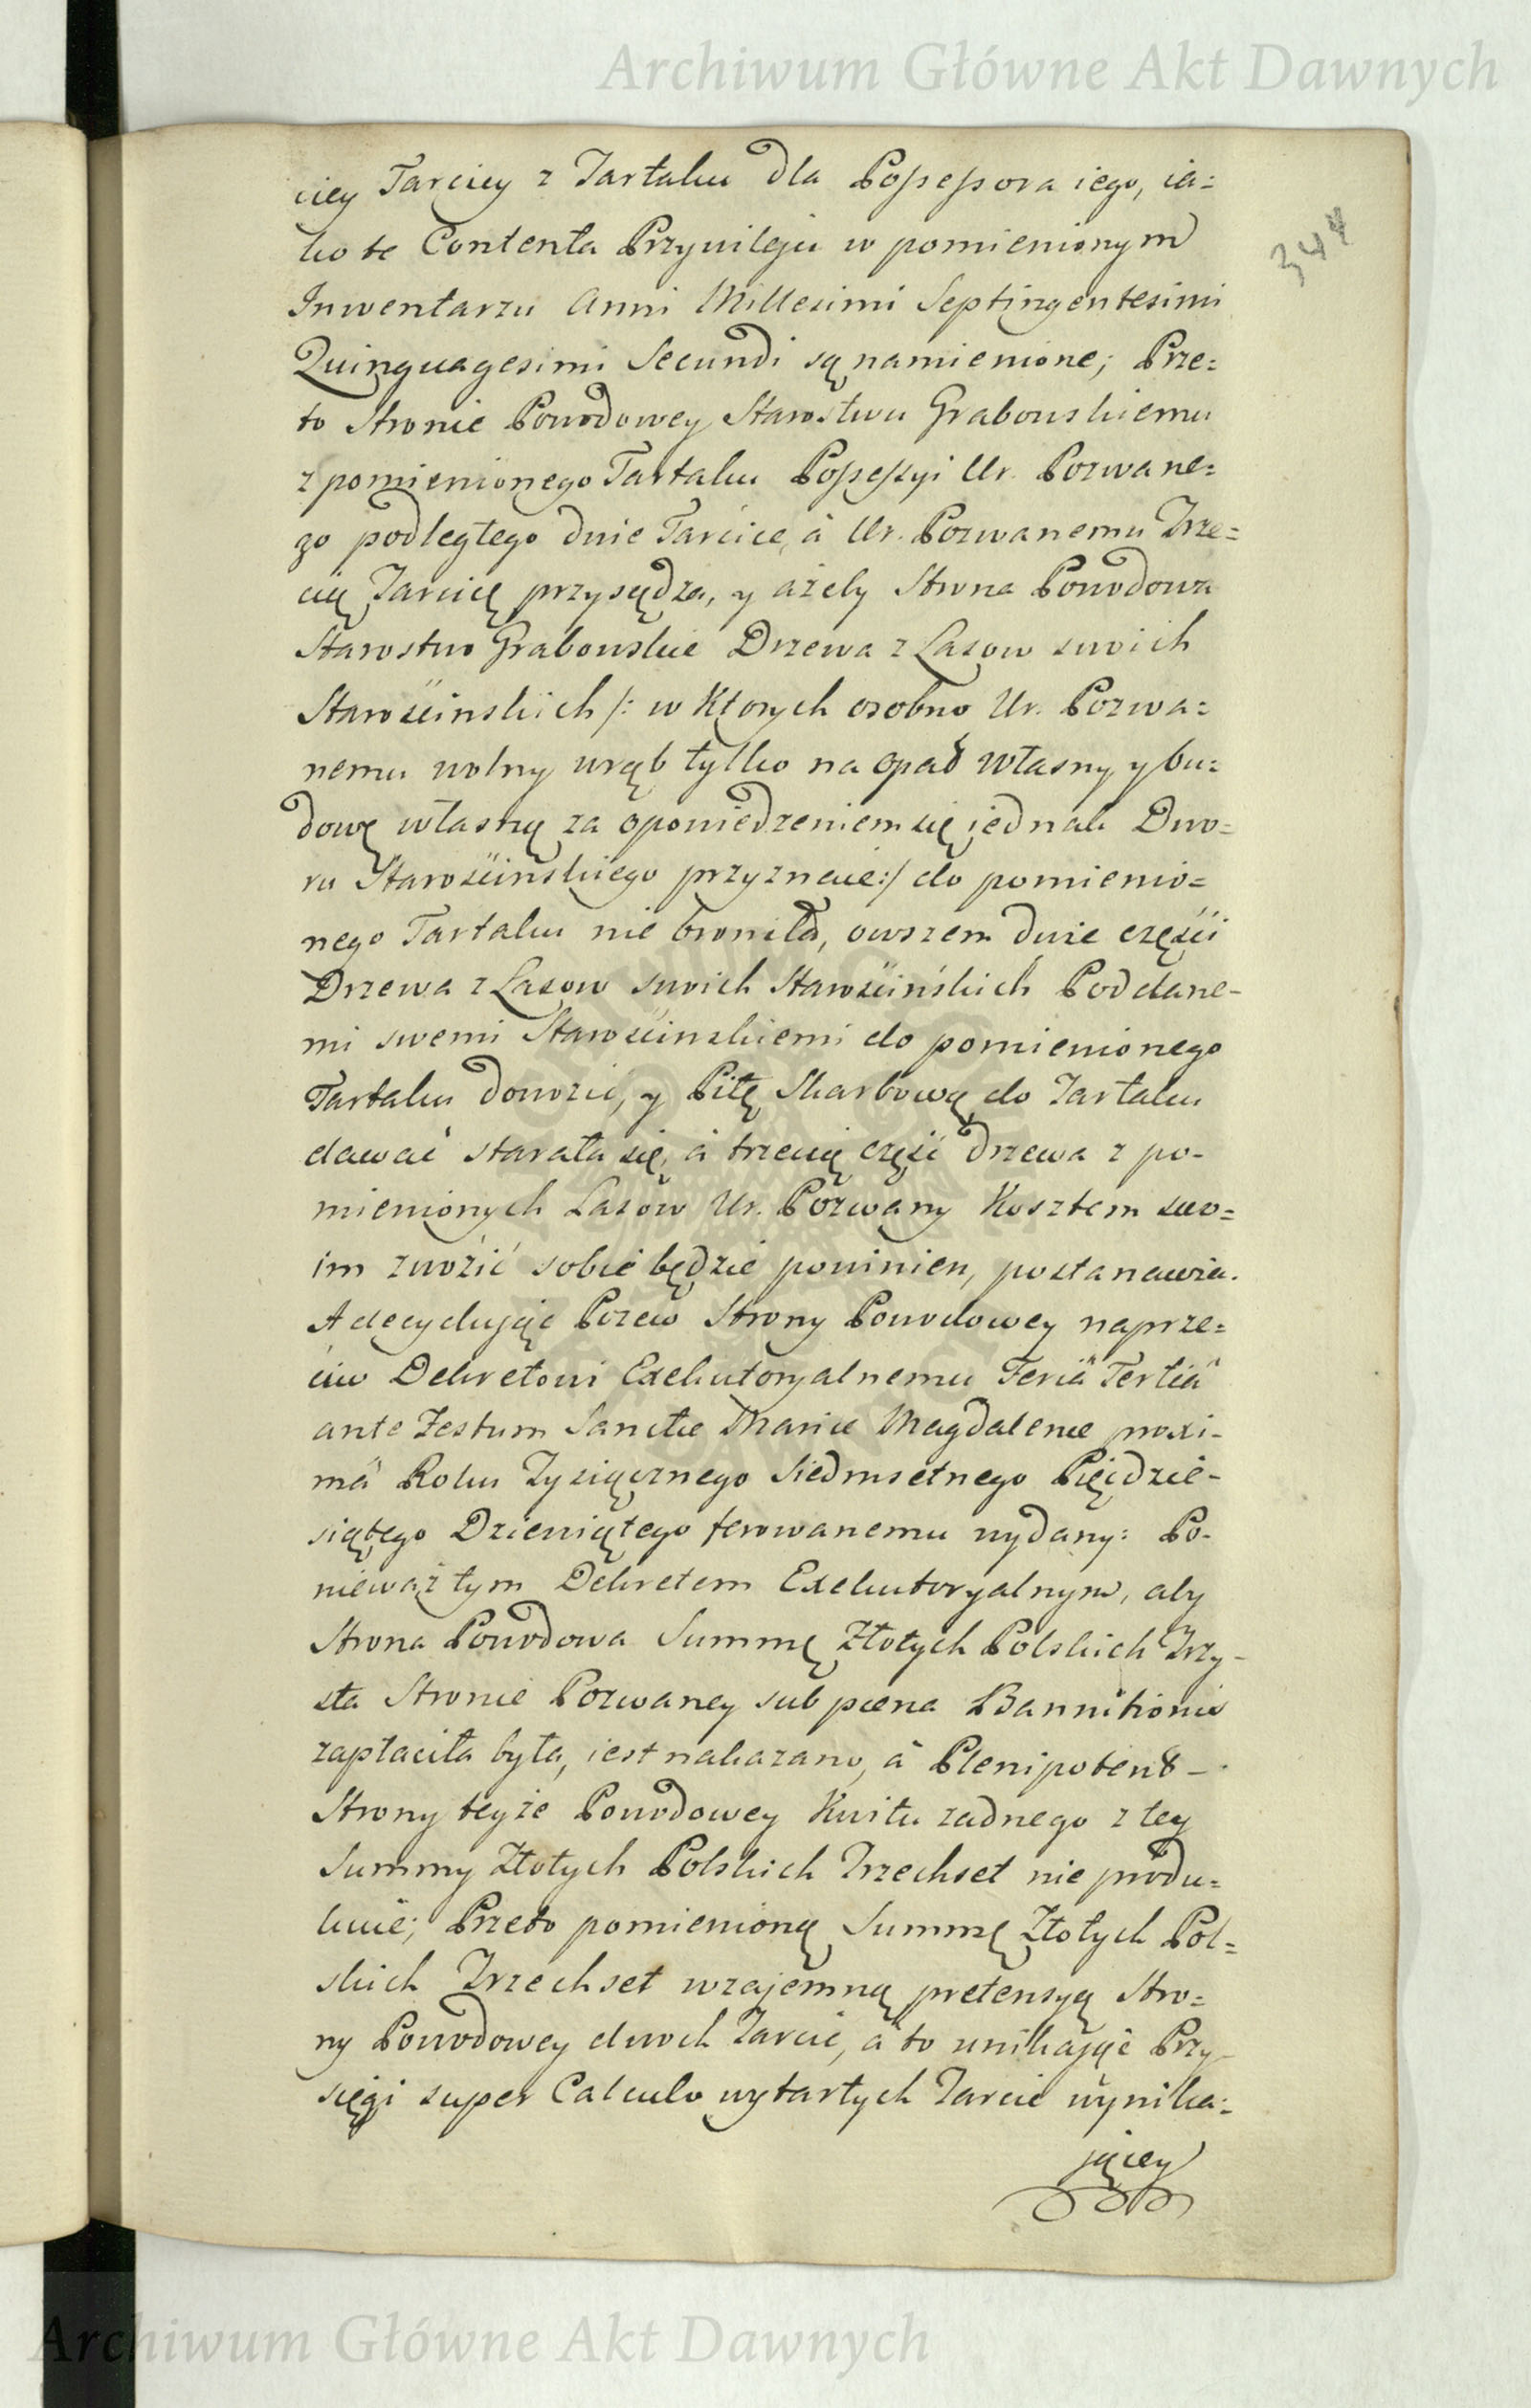 Archiwum Główne Akt Dawnych
344
ciey Tarcicy z Tartaku dla Possessora iego, ia=
ko te Contenta Przywileju w pomienionym
Inwentarzu Anni Millesimi Septingentesimi
Quinquagesimi Secundi są namienione; Prze=
to Stronie Powodowey Starostwu Grabowskiemu
z pomienionego Tartaku Possessyi Ur. Pozwane=
go podległego dwie Tarcice, á Ur. Pozwanemu Trze=
cią Tarcicę przysądza, y ażeby Strona Powodowa
Starostwo Grabowskie Drzewa z Lasow swoich
Starościnskich /: w Ktorych osobno Ur. Pozwa=
nemu wolny wrąb tylko na opał własny y bu=
dowę własną za opowiedzeniem się jednak Dwo=
ru Starościńskiego przyznaie :/ do pomienio=
nego Tartaku nie broniła, owszem dwie części
Drzewa z Lasow swoich Starościńskich Poddane-
mi swemi Starościnskiemi do pomienionego
Tartaku dowozić, y Piłę Skarbową do Tartaku
dawać starała się, á trzecią część drzewa z po-
mienionych Lasow Ur. Pozwany Kosztem swo=
im zwozić sobie będzie powinien, postanawia.
A decydując Pozew Strony Powodowey naprze=
ciw Dekretowi Exekutoryalnemu Feriâ Tertiâ
ante Festum Sanctæ Mariæ Magdalenæ proxi-
mâ Roku Tysiącznego Siedmsetnego Pięćdzie-
siątego Dziewiątego ferowanemu wydany: Po-
nieważ tym Dekretem Exekutoryalnym, aby
Strona Powodowa Summę Złotych Polskich Trzy-
sta Stronie Pozwaney sub pœna Bannitionis
zapłaciła była, iest nakazano, á Plenipotent -
Strony teyże Powodowey Kwitu zadnego z tey
Summy Złotych Polskich Trzechset nie produ=
kuie; Przeto pomienioną Summę Złotych Pol=
skich Trzechset wzajemną pretensyą Stro=
ny Powodowey dwoch Tarcic, á to unikając Przy-
sięgi super Calculo wytartych Tarcic wynika=
jącey
Archiwum Główne Akt Dawnych